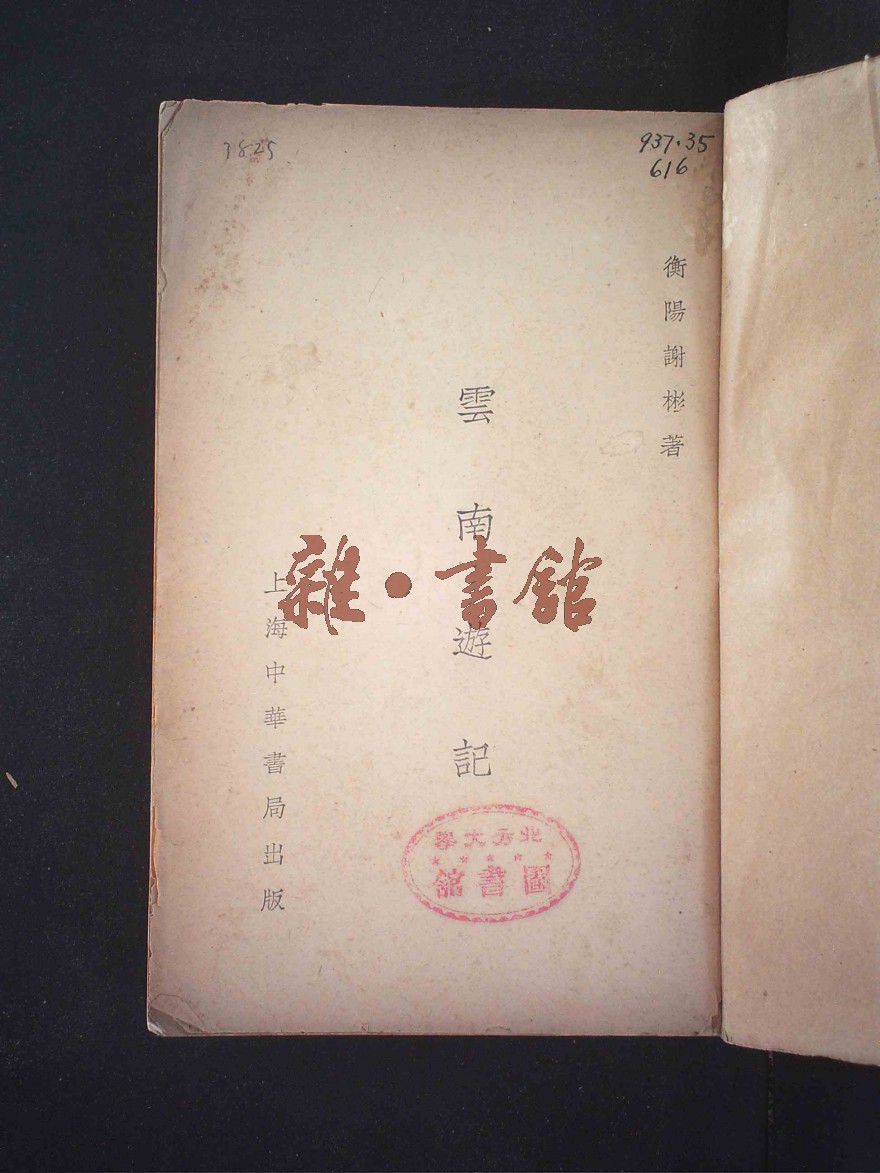 3825
937.35
616
衡陽謝彬著
雲南遊記
雜·書館
上海中華書局出版
北方大學
圖書館